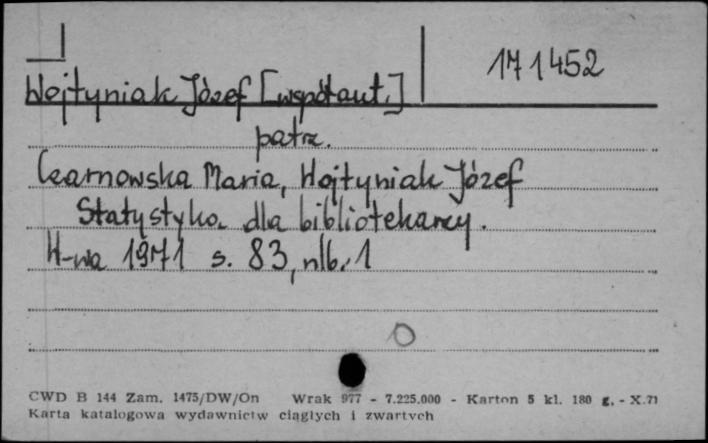 171452
Wojtyniak Józef [współaut.]
patrz.
Czarnowska Maria, Wojtyniak Józef
Statystyka dla bibliotekarzy.
W-wa 1971 s. 83, nlb. 1
CWD B 144 Zam. 1475/DW/On Wrak 977 - 7.225.000 - Karton 5 kl. 180 g. - X.71
Karta katalogowa wydawnictw ciągłych i zwartych